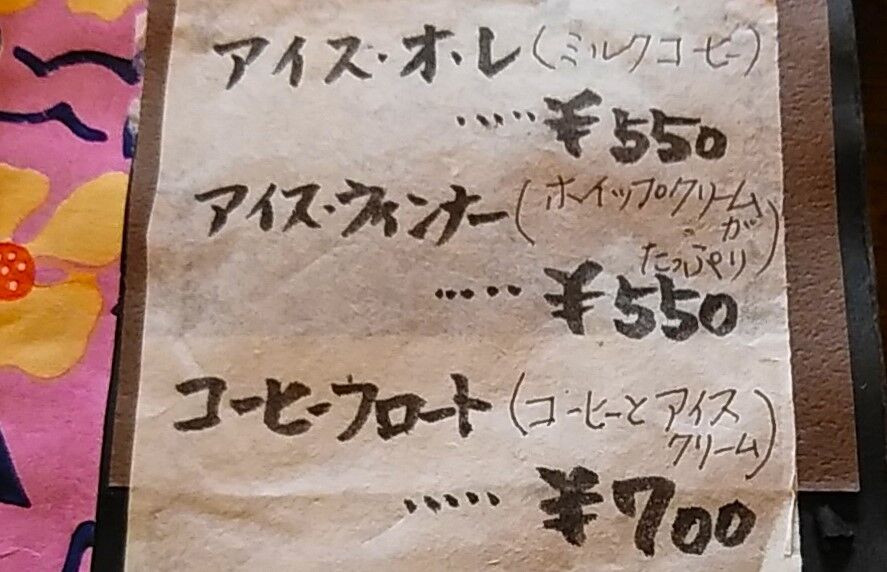 アイス・オ・レ(ミルクコーヒー)
・・・・・¥550
アイス・ウィンナー(ホイップクリーム
が
たっぷり)
・・・・・¥550
コーヒーフロート(コーヒーとアイス
クリーム)
・・・・・¥700